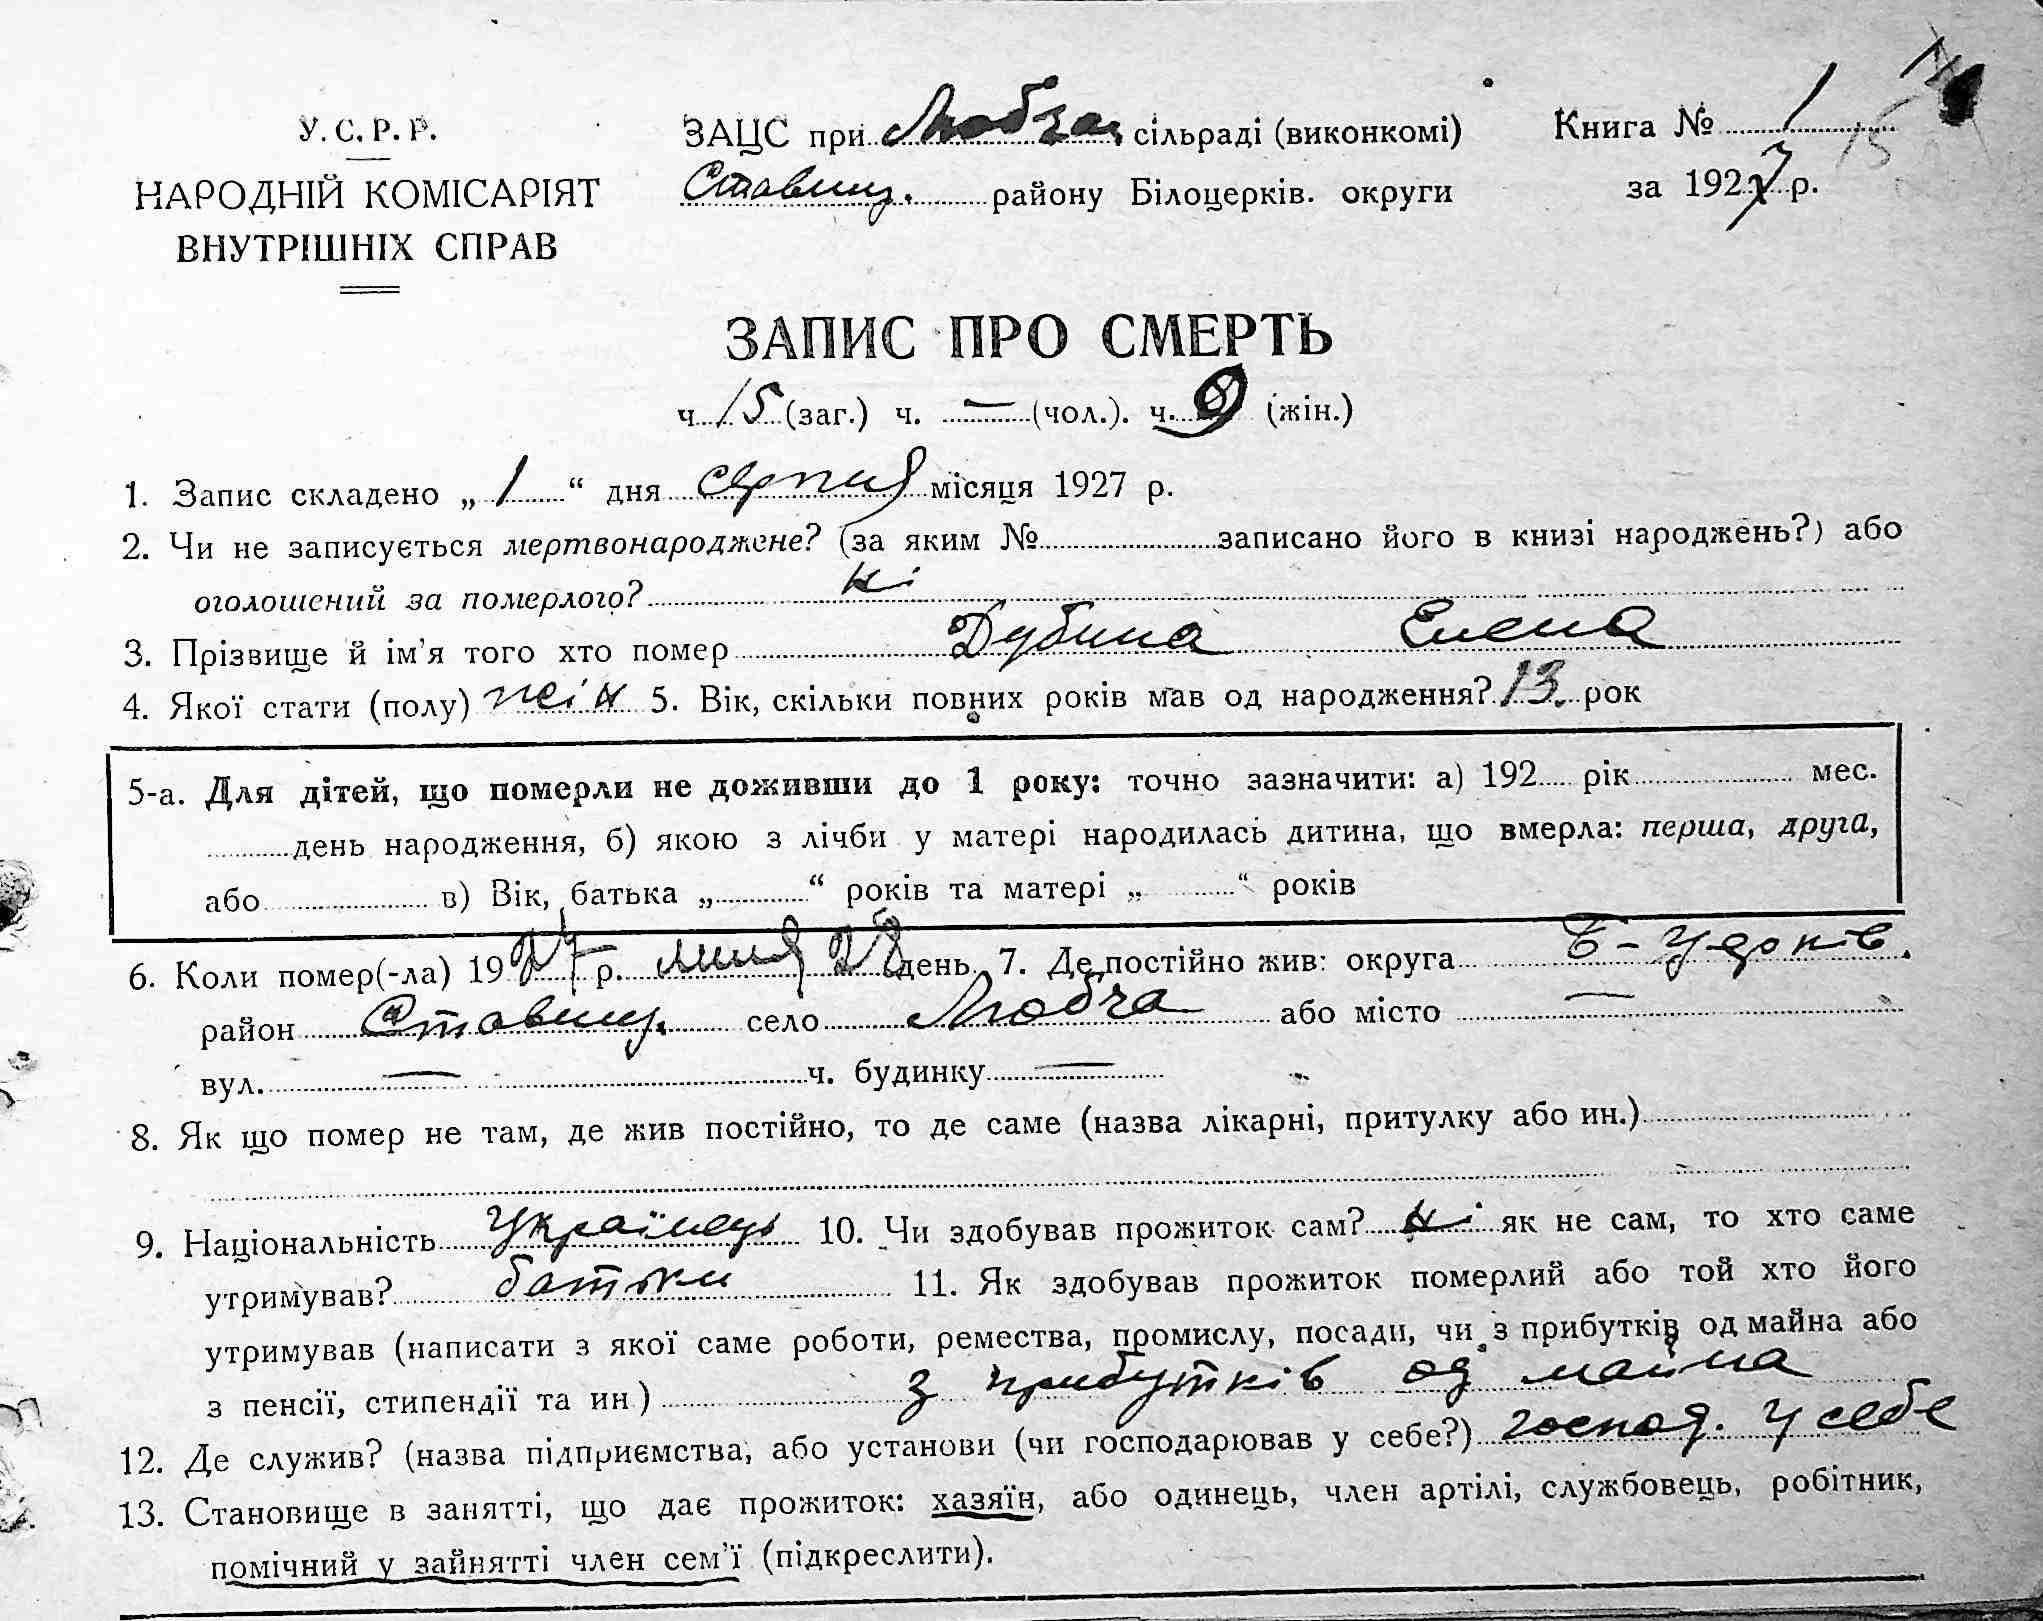 У.С.Р.Р.
НАРОДНІЙ КОМІСАРІЯТ
ВНУТРІШНІХ СПРАВ
ЗАЦС при Любча сільраді (виконкомі)
Ставищ. району Білоцерків. округи
Книга № 1
15
за 1927 р.
ЗАПИС ПРО СМЕРТЬ
ч. 15 (заг.) ч. — (чол.). ч. 9 (жін.)
1. Запис складено „ 1 “ дня серпня місяця 1927 р.
2. Чи не записується мертвонароджене? (за яким № записано його в книзі народжень?) або
оголошений за померлого? ні
3. Прізвище й ім’я того хто помер Дубина Елена
4. Якої стати (полу) жін 5. Вік, скільки повних років мав од народження? 13. рок
5-а. Для дітей, що померли не доживши до 1 року: точно зазначити: а) 192 рік мес.
день народження, б) якою з лічби у матері народилась дитина, що вмерла: перша, друга,
або в) Вік, батька „ “ років та матері „ “ років
6. Коли помер(-ла) 1927 р. липня 28 день. 7. Де постійно жив: округа Б-Церків.
район Ставищ. село Любча або місто —
вул. — ч. будинку —
8. Як що помер не там, де жив постійно, то де саме (назва лікарні, притулку або ин.)
9. Національність Українець 10. Чи здобував прожиток сам? ні як не сам, то хто саме
утримував? батьки 11. Як здобував прожиток померлий або той хто його
утримував (написати з якої саме роботи, ремества, промислу, посади, чи з прибутків од майна або
з пенсії, стипендії та ин.) з прибутків од майна
12. Де служив? (назва підприємства, або установи (чи господарював у себе?) господ. у себе
13. Становище в занятті, що дає прожиток: хазяїн, або одинець, член артілі, службовець, робітник,
помічний у зайнятті член сем’ї (підкреслити).